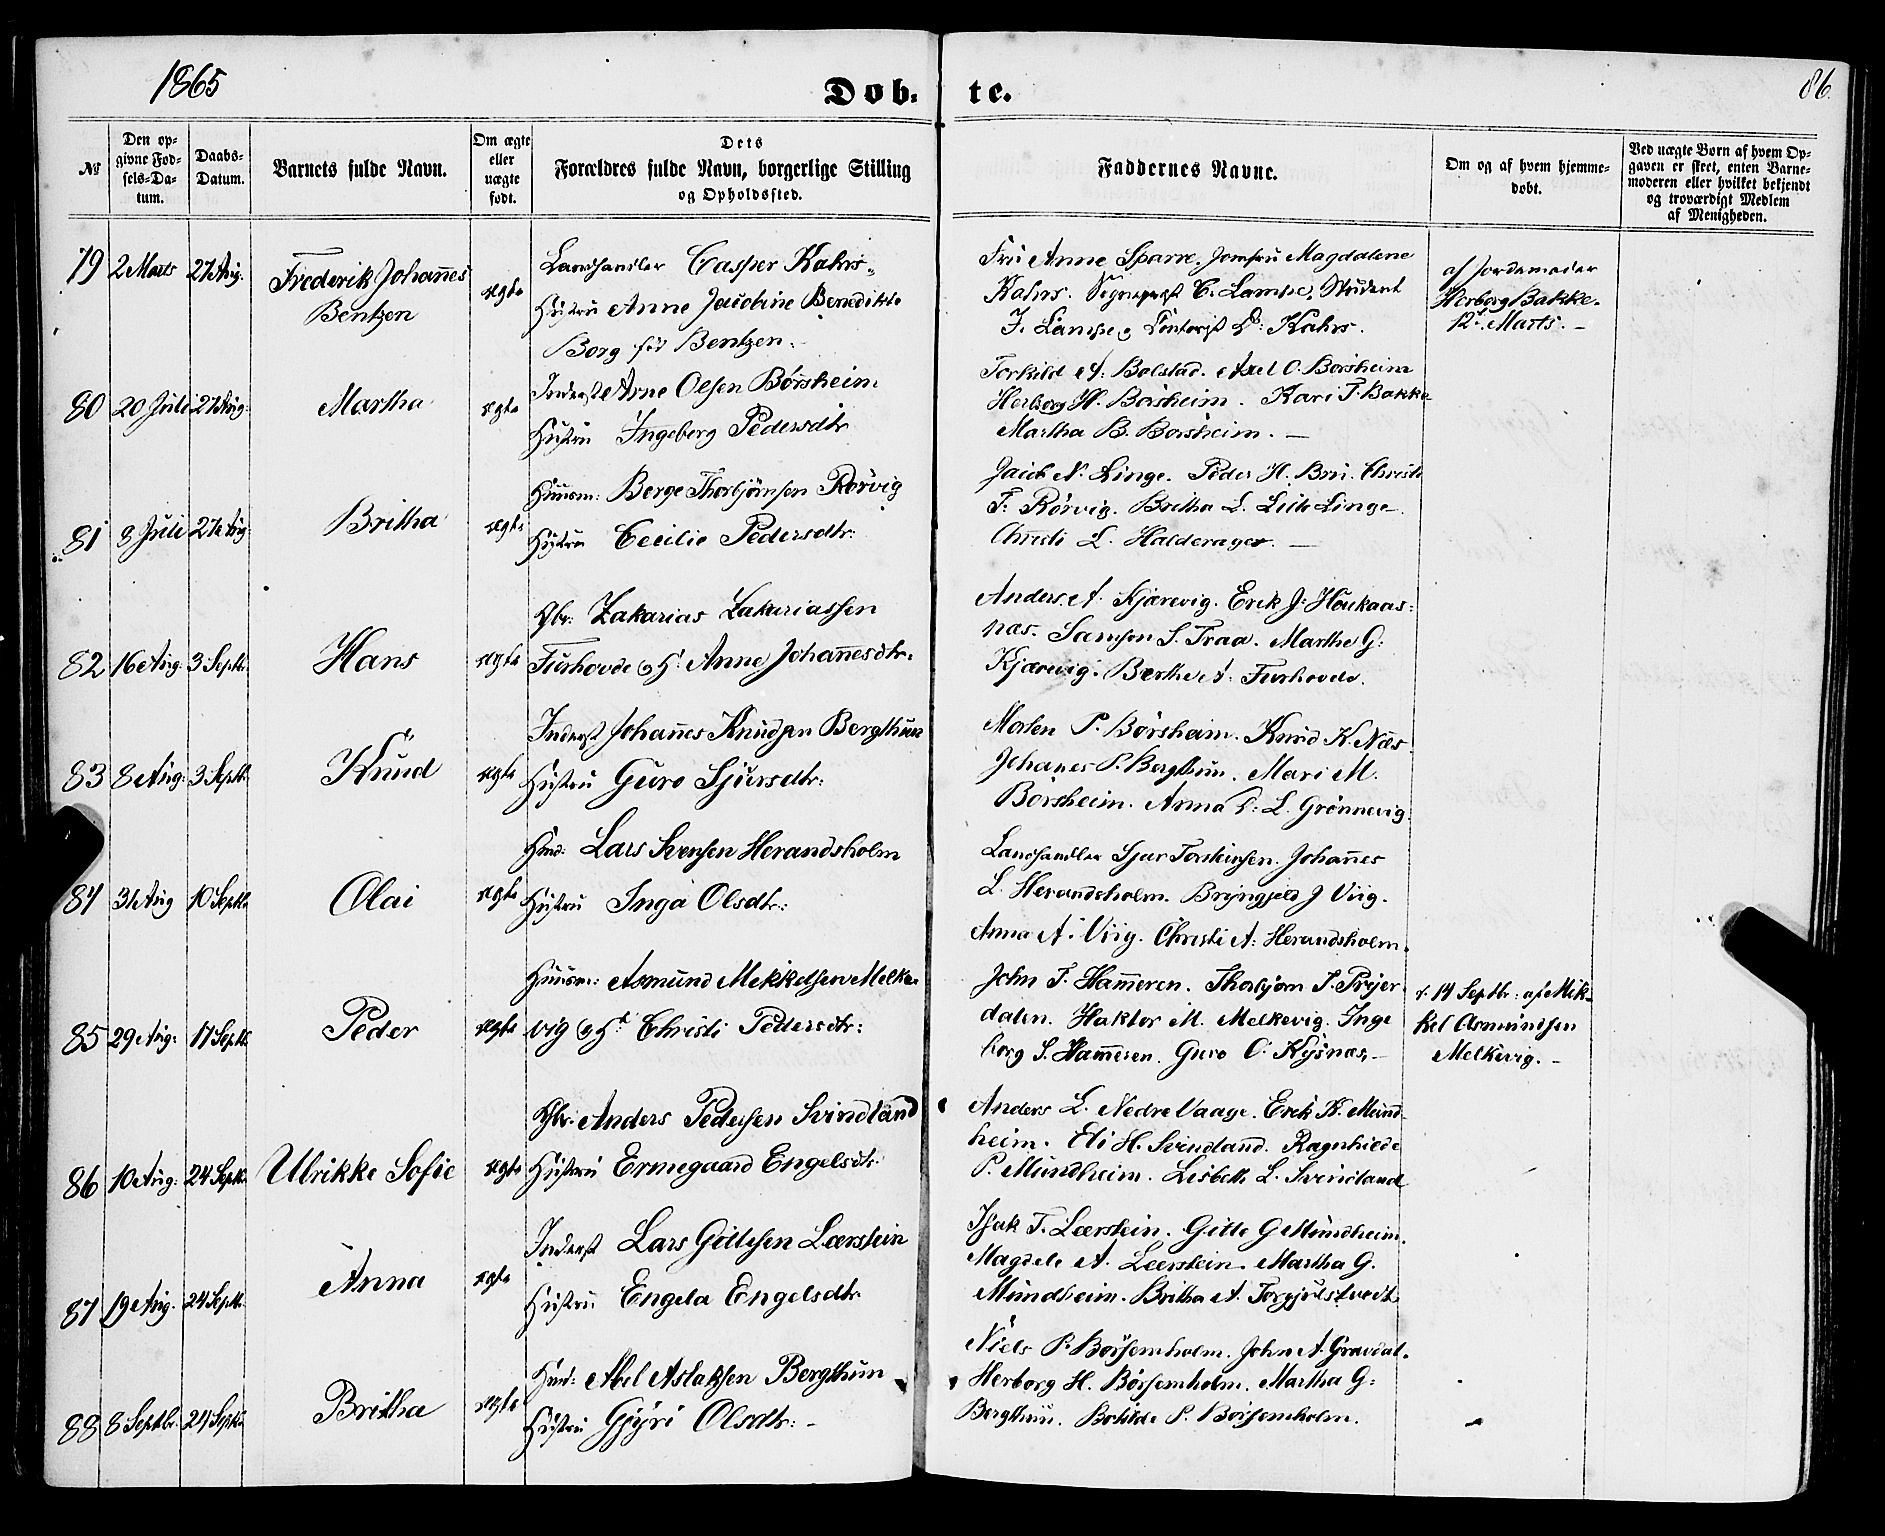 1865
Døb-
te.
86.
№
Den op-
givne Fød-
sels-Da-
tum.
Daabs-
Datum.
Barnets fulde Navn.
Om ægte
eller
uægte
født.
Dets
Forældres fulde Navn, borgerlige Stilling
og Opholdssted.
Faddernes Navne.
Om og af hvem hjemme-
døbt.
Ved uægte Børn af hvem Op-
gaven er skeet, enten Barne-
moderen eller hvilket bekjendt
og troværdigt Medlem
af Menigheden.
79 2 Marts 27 Aug. Frederik Johannes
Bentzen
ægte
Landhandler Casper Kahrs
Hustru Anne Jacobine Benedikte
Borg født Bentzen.
Fru Anne Sparre. Jomfru Magdalene
Kahrs. C. Lampe, Student
J. Lampe, Contorist Kahrs.
af Jordemoder
Herborg Bakke.
12t Marts. –
80 20 Juli 27 Aug. Martha ægte
Inderst Arne Olsen Börsheim
Hustru Ingeborg Pedersdtr
Torkild A. Bolstad. Axel O. Borsheim
Herborg H. Börsheim. Kari T. Bakke
Martha B. Borsheim. –
81 8 Juli 27 Aug. Britha ægte
Huusm: Berge Thorbjörnsen Rörvig
Hustru Cecilie Pedersdtr:
Jacob N. Linge. Peder H. Bru. Christi
T. Rörvig. Britha L. Linge.
Christi L. Halderager. –
82 16 Aug. 3 Septbr. Hans ægte
Gbr: Zakarias Zakariassen
Furhovde og H. Anne Johannesdtr.
Anders A. Kjærevig. Erik J. Haukaas-
næs. Samson S. Traa. Marthe G:
Kjærevig. Berthe A. Furhovde.
83 8 Aug: 3 Septbr. Knud ægte
Inderst Johannes Knudsen Bergthun
Hustru Guro Sjursdtr:
Morten P. Börsheim. Knud K. Næs
Johanes P. Bergthun. Mari M.
Borsheim. Anna L. Grönnevig.
84 31 Aug 10 Septbr. Olai ægte
Gmd: Lars Svensen Herandsholm
Hustru Inga Olsdtr:
Landhandler Sjur Torsteinsen. Johannes
L. Herandsholm. Bryngjeld J Viig.
Anna A. Viig. Christi A: Herandsholm.
85 29 Aug: 17 Septbr. Peder ægte
Huusm: Asmund Mikkelsen Melke-
vig og H. Christi Pedersdtr:
John T. Hammeren. Thorbjörn S. Fryer-
dalen. Haktor M. Melkevig. Inge
borg S. Hammeren. Guro O. Kysnæs. –
d. 14 Septbr: af Mik-
kel Asmundsen
Melkevig. –
86 10 Aug: 24 Septbr. Ulrikke Sofie ægte
Gbr. Anders Pedersen Svindland
Hustru Ermegaard Engelsdtr.
Anders L. Nedre Vaage. Erik K. Mund-
heim. Eli H. Svindland. Ragnhilde
P. Mundheim. Lisbeth L. Svindland
87 19 Aug. 24 Septbr. Anna ægte
Inderst Lars Gitlesen Leerstein
Hustru Engela Engelsdtr.
Isak T. Leerstein. Gitle G Mundheim.
Magdele A. Leerstein. Martha G.
Mundheim. Britha A. Torgjulstvedt
88 8 Septbr. 24 Septbr. Britha ægte
Gmd: Abel Aslaksen Bergthun
Hustru Gjyri Olsdtr: –
Niels P. Börsemholm. John A. Gravdal.
Herborg H. Börsemholm. Martha G:
Bergthun. Botilde P. Börsemholm.